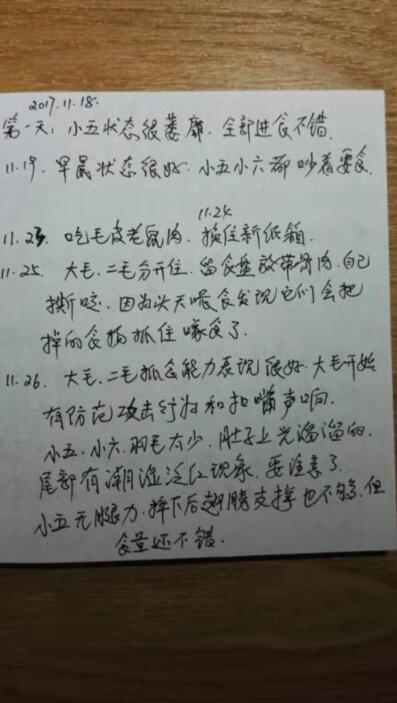 2017.11.18.
第一天：小五状态很萎靡．全部进食不错．
11.19．早晨状态很好．小五小六都吵着要食．
11.24
11.23．吃毛皮老鼠肉．换住新纸箱．
11.25．大毛、二毛分开住．留食盘放带骨肉．自己
撕咬．因为头天喂食发现它们会把
掉的食物抓住啄食了．
11.26．大毛、二毛抓食能力表现很好．大毛开始
有防范攻击行为和扣嘴声响．
小五、小六．羽毛太少．肚子上光溜溜的．
尾部有潮湿泛红现象．要注意了．
小五无腿力．摔下后翅膀支撑也不够．但
食量还不错．